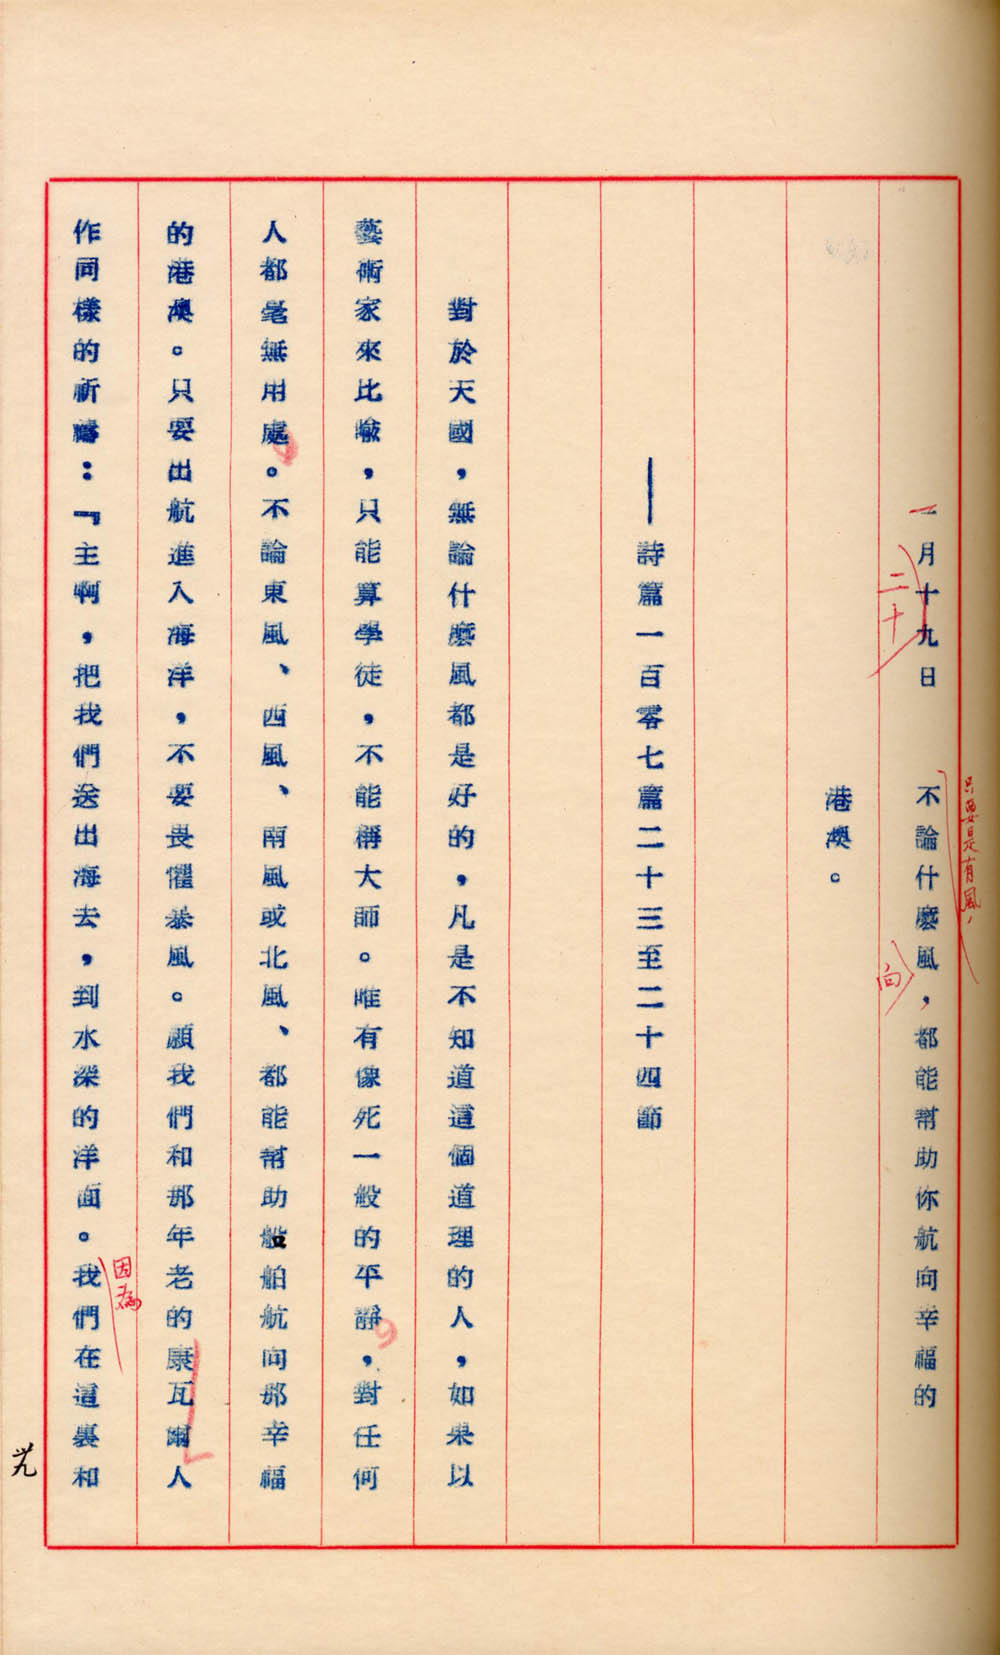 一月十九日　不論什麼風，都能幫助你航向幸福的
二十
只要是有風，
向
港澳。
——詩篇一百零七篇二十三至二十四節
對於天國，無論什麼風都是好的，凡是不知道這個道理的人，如果以
藝術家來比喻，只能算學徒，不能稱大師。唯有像死一般的平靜，對任何
人都毫無用處。不論東風、西風、南風或北風、都能幫助船舶航向那幸福
的港澳。只要出航進入海洋，不要畏懼暴風。願我們和那年老的康瓦爾人
作同樣的祈禱：『主啊，把我們送出海去，到水深的洋面。我們在這裏和
因為
卅九